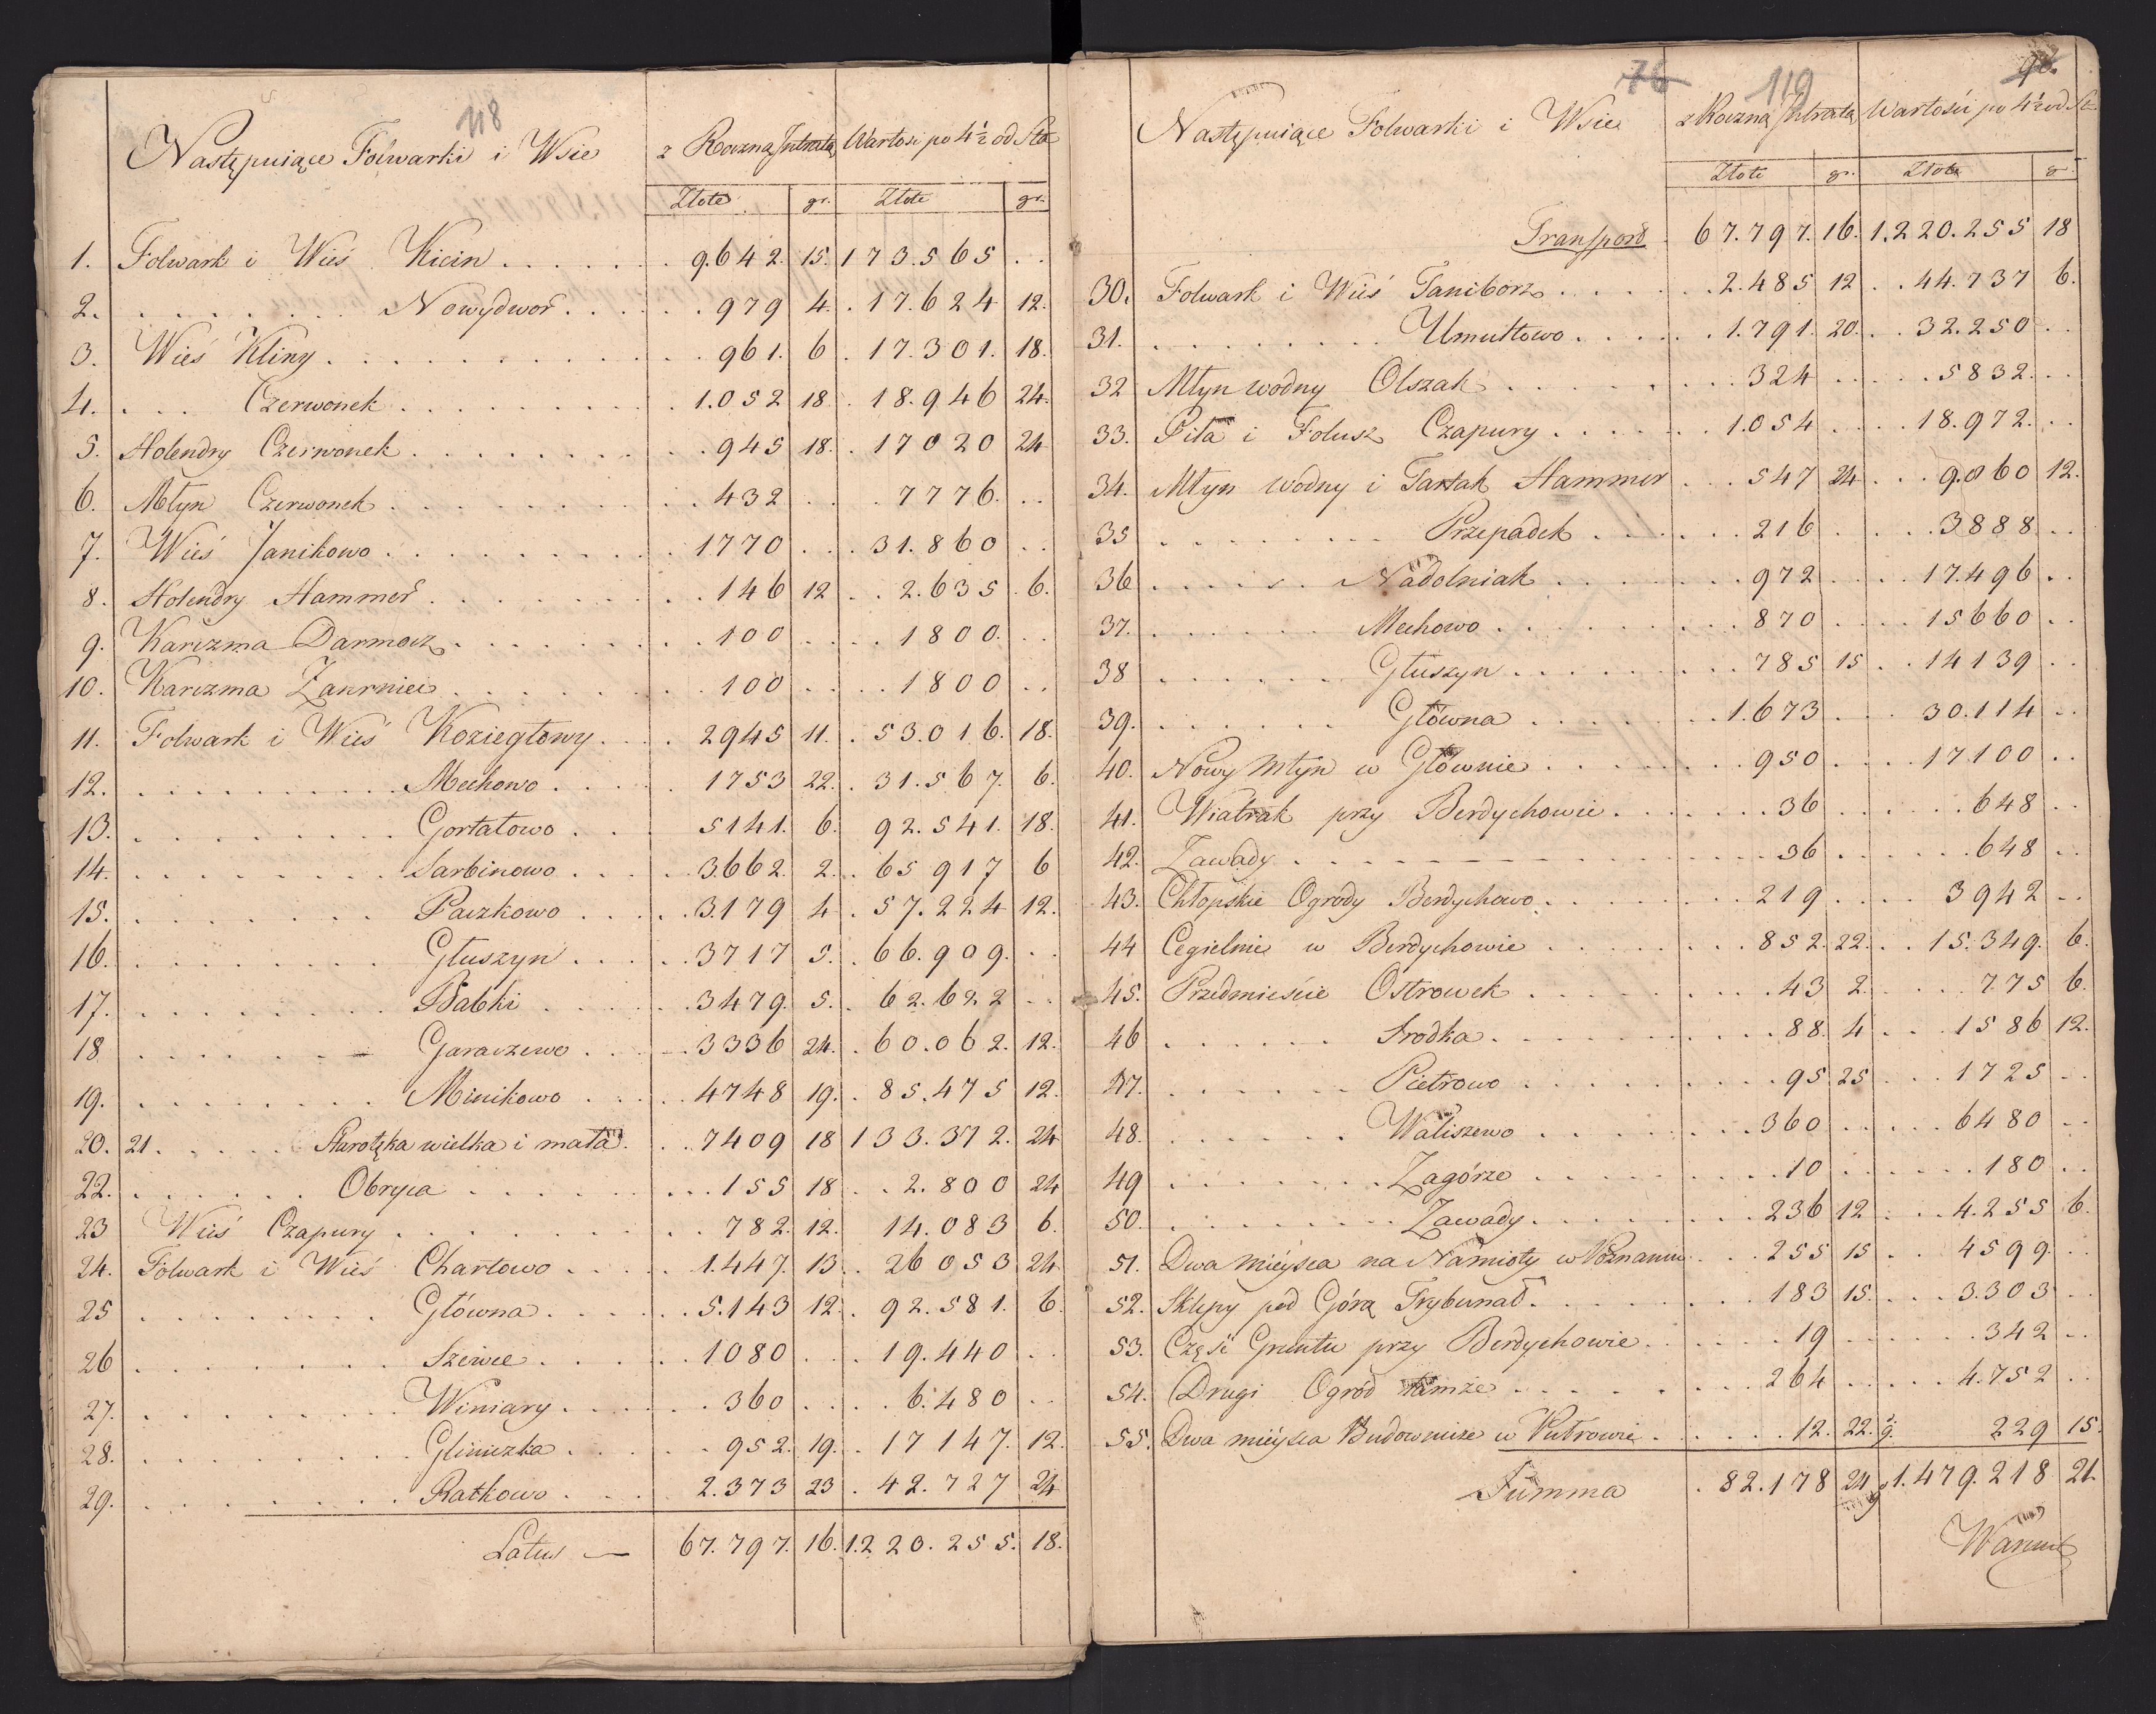 118
Następuiące Folwarki i Wsie z Roczną Intratą Wartości po 4½ od Sta
Złote gr. Złote gr.
1. Folwark i Wieś Kicin . . . . . . . 9.642. 15. 173.565 . .
2. . . . . . . . Nowydwor . . . . . 979 4. . 17.624 12.
3. Wieś Kliny . . . . . . . . . . . . 961. 6 . 17.301. 18.
4. . . . Czerwonek . . . . . . . . . 1.052 18 . 18.946 24.
5. Holendry Czerwonek . . . . . . . . . 945 18. . 17020 24
6. Młyn Czerwonek . . . . . . . . . 432 . . . 7776. . .
7. Wieś Janikowo . . . . . . . . . 1770 . . . 31.860 . .
8. Holendry Hammer . . . . . . . . 146 12 . . 2.635 . 6.
9. Karczma Darmocz . . . . . . . . 100 . . . . 1800. . .
10. Karczma . . . . . . . . 100 . . . . 1800 . .
11. Folwark i Wieś Koziegłowy . . . . 2945 11. . 53.016. 18.
12. . . . . . . . . . Mechowo . . . . . 1753 22. . 31.567. 6.
13. . . . . . . . . . Gortatowo . . . . 5141. 6. 92.541. 18.
14. . . . . . . . . . Sarbinowo . . . . . 3.662. 2. . 65917 6
15. . . . . . . . . . Paczkowo . . . . . 3.179 4 . 57.224 12.
16. . . . . . . . . . Głuszyn . . . . . 3717 5. . 66.909. . .
17. . . . . . . . . . Babki . . . . . . 3479. 5. . 62.622 . .
18 . . . . . . . Garaczewo . . . . . 3336 24. . 60.062. 12.
19. . . . . . . . . Minikowo . . . . . 4748 19. . 85.475 12.
20. 21 . . . . . Starołęka wielka i mała . . . 7409 18 133.372. 24
22. . . . . . . Obryca . . . . . . . . . 155 18 . . 2.800 24
23 Wieś Czapury . . . . . . . . . 782. 12. 14.083 6.
24. Folwark i Wieś Chartowo . . . . . 1.447. 13 . . 26053 24
25 . . . . . . . . Główna . . . . . 5.143 12. . 92.581. 6.
26 . . . . . . . . Szewce . . . . . . 1080 . . . 19.440 . .
27. . . . . . . . . Winiary . . . . . . 360 . . . . 6.480 . .
28. . . . . . . . . Gliniczka . . . . . . 952. 19. . 17147. 12.
29. . . . . . . . . Ratkowo . . . . 2.373 23 . 42.727 24
Latus — 67.797. 16. 1.220.255. 18.
76 119 90.
Następuiące Folwarki i Wsie z Roczną Intratą Wartości po 4½ od St
Złote gr. Złote gr
Transport . 67.797. 16. 1.220.255 18
30. Folwark i Wieś Taniborz . . . . . . 2.485 12 . . 44.737 6.
31. . . . . . . . . Umultowo . . . . . 1.791. 20. . . 32.250 . .
32 Młyn wodny Olszak . . . . . . . . 324 . . . . . 5832. . .
33. Piła i Folusz Czapury . . . . . . . 1.054 . . . . 18.972. . .
34. Młyn wodny i Tartak Hammer . . . 547 24 . . . 9.860 12.
35 . . . . . . . . Przepadek . . . . . . 216 . . . . . 3888 . .
36 . . . . . . Nadolniak . . . . . . . . 972 . . . . 17.496 . .
37. . . . . . . Mechowo . . . . . . . . 870 . . . . 15660 . .
38 . . . . . . Głuszyn . . . . . . . . 785 15 . . 14139 . .
39. . . . . . . Główna . . . . . . . 1.673 . . . 30.114 . .
40. Nowy Młyn w Głownie . . . . . . . . 950 . . . . 17100 . .
41. Wiatrak przy Berdychowie . . . . . . . 36 . . . . . . 648 . .
42. Zawady . . . . . . . . . . . . . . 36 . . . . . . 648 . .
43. Chłopskie Ogrody Berdychowo . . . . . . . . 219 . . . . 3942 . .
44 Cegielnie w Berdychowie . . . . . . . . 852. 22. . . 15.349. 6.
45. Przedmieście Ostrowek . . . . . . . . . 43 2. . . . . 775 6.
46 . . . . . . Srodka . . . . . . . . . . 88. 4 . . . 1586 12.
47. . . . . . . Pietrowo . . . . . . . . . 95 25 . . . 1725 . .
48. . . . . . . Waliszewo . . . . . . . . 360 . . . . . 6480 . .
49 . . . . . . . Zagórze . . . . . . . . . 10 . . . . . . 180 . .
50. . . . . . . . Zawady . . . . . . . . . 236 12 . . . 4.255 6.
51. Dwa mieysca na Namioty w Poznaniu . . . 255 15 . . 4599. . .
52. Sklepy pod Górą Trybunał . . . . . . . . 183 15. . . . 3.303 . .
53. Część Gruntu przy Berdychowie . . . . . . 19 . . . . . . 342 . .
54. Drugi Ogród tamże . . . . . . . . 264 . . . . . 4.752 . .
55. Dwa mieysca Budownicze w Piotrowie . . . . . . 12. 22. ½. 229 15.
Summa . 82.178 24 1.479.218 21.